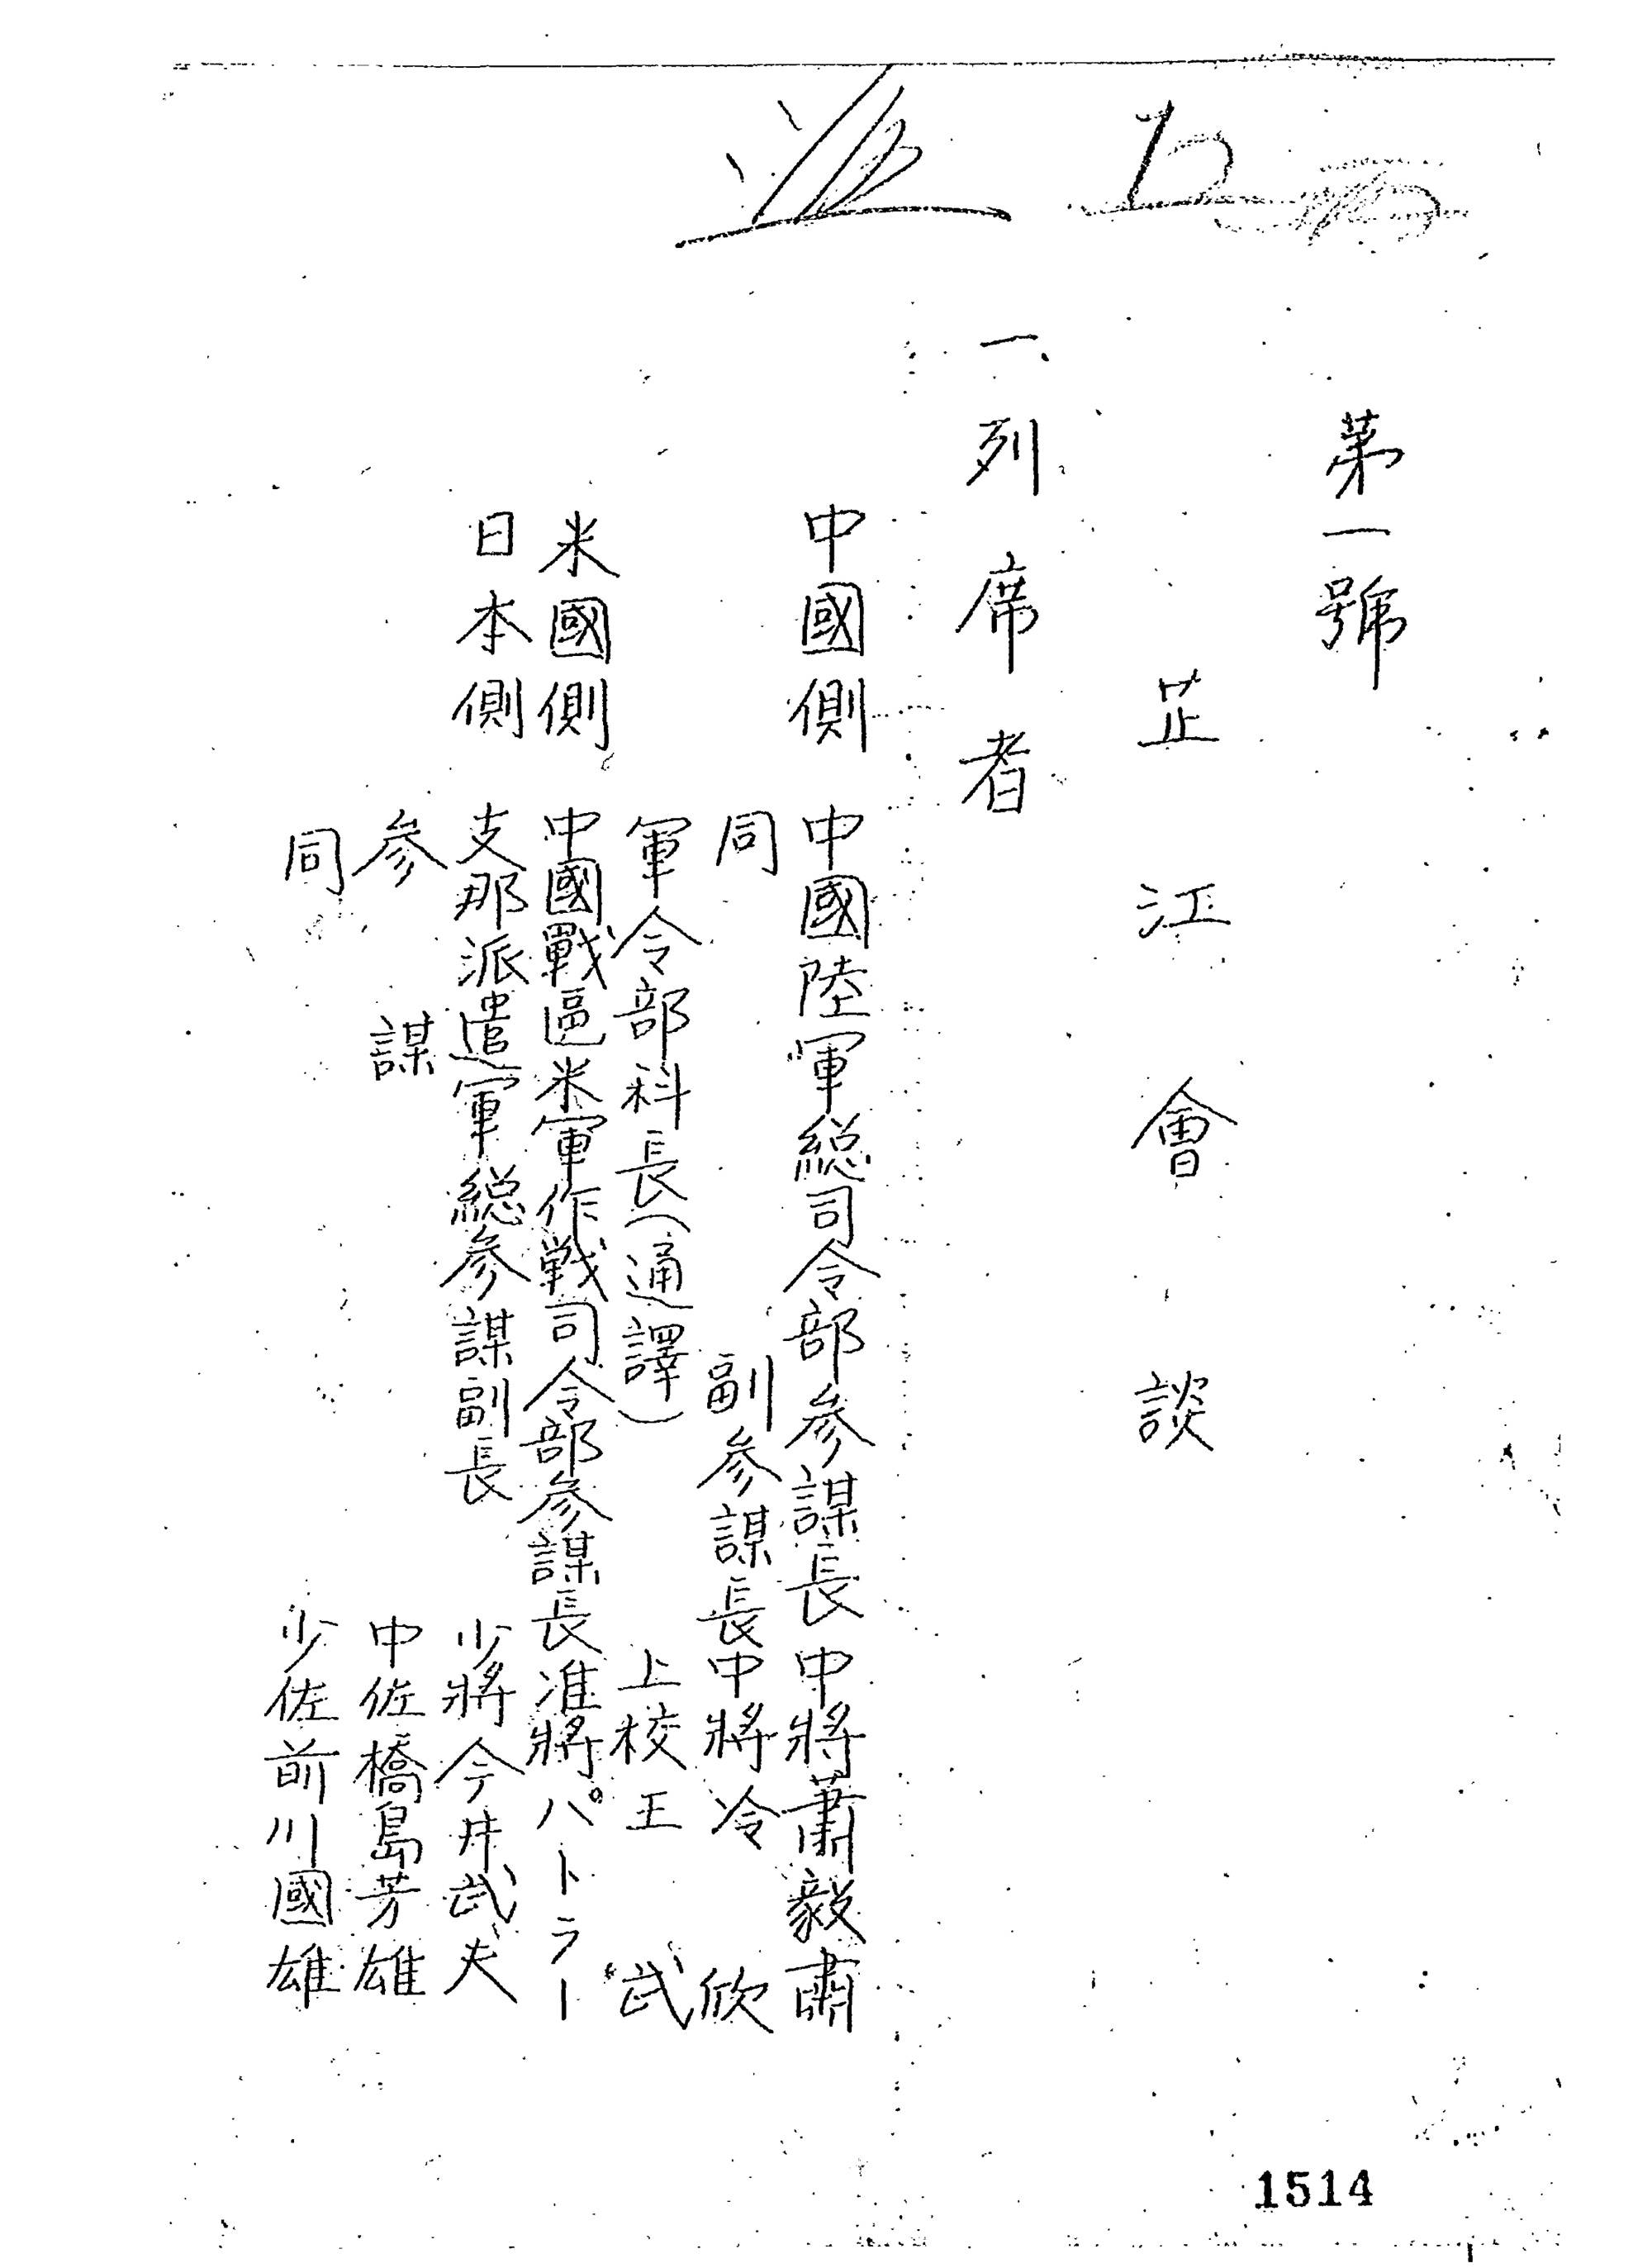 第一號
芷江會談
一、列席者
中國側 中國陸軍総司令部參謀長 中將 蕭毅肅
同 副參謀長 中將 冷欣
軍令部科長(通譯) 上校 王武
米國側 中國戰區米軍作戦司令部參謀長 准將 パトラー
日本側 支那派遣軍総參謀副長 少將 今井武夫
參謀 中佐 橋島芳雄
同 少佐 前川國雄
1514